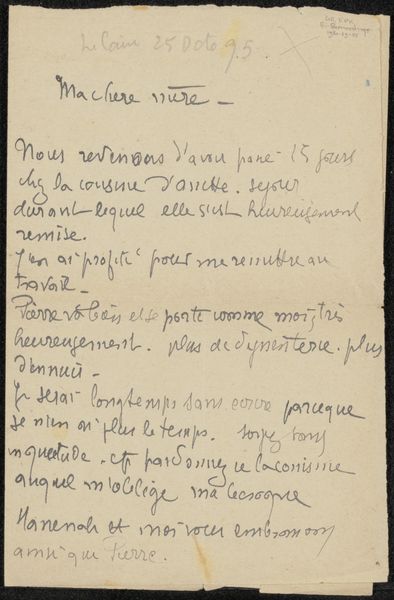 Le Caire 25 Octo 95
Ma chere mère –
Nous revenons d'avoir passé 15 jours
chez la cousine d'. sejour
durant lequel elle s'est heureusement
remise.
J'en ai profité pour me remettre au
travail –
Pierre va bien et se porte comme moi, très
heureusement. plus de dysenterie. plus
d'ennui –
Je serai longtemps sans ecrire parceque
je n'en ai plus le temps. soyez sans
inquietude. et pardonnez le laconisme
auquel m'oblige ma besogne
Hanenah et moi vous embrassons
ainsi que Pierre.